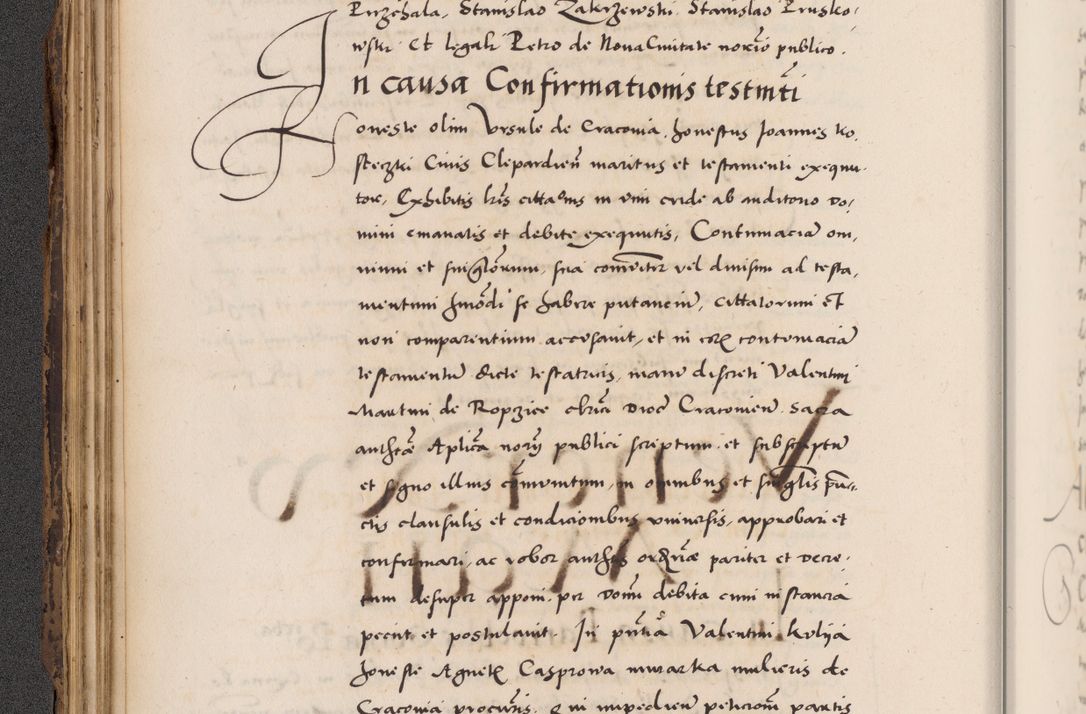 Przchala, Stanislao Zakrzewski. Stanislao Prusko-
wski. Et legali Petro de Nova Civitate norio publico.
In causa Confirmationis testmti
Honeste olim Ursule de Cracovia, honestus Joannes Ko-
steczki Civis Clepardien maritus et testamenti exequu-
tor, Exhibitis lris cittatris in vim cride ab auditorio Do-
mini emanatis et debite exequutis, Contumaciam om-
nium et singlorum, sua comuniter vel divisim ad testa-
mentum hmodi se habere putantium, cittatorum et
non comparentium accusavit, et in eorum contumaciam
testamentum dicte testatricis, manu discreti Valentini
Martini de Ropczice clrici Dioc Cracovien. Sacra
authte Aplica norii publici scriptum, et subscriptum
et signo illius comunitum, in omnibus et singlis pun-
ctis clausulis et condicionibus universis, approbari et
confirmari, ac robor authtis ordrie pariter et Decre-
tum desuper apponi, per Domi debita cum instancia
peciit et postulavit. In pntia Valentini Kulija
honeste Agnetis Casprowa mwarka mulieris de
Cracovia procuris. Qui impedien peticionem partis